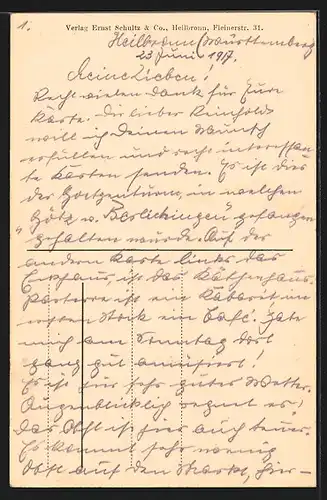 1.
Verlag Ernst Schultz & Co., Heilbronn, Fleinerstr. 31.
Heilbronn (Württemberg
23 Juni 1917.
Meine Lieben!
Recht vielen Dank für Eure
Karte. Dir lieber Reinhold
will ich Deinen Wunsch
erfüllen und recht interessan-
te Karten senden. Es ist dies
der Götzenturm, in welchen
"Götz v. Berlichingen" gefangen
gehalten wurde. Auf der
andern Karte links das
Eckhaus, ist das Käthchenhaus.
Parterre ist ein Kabaret, im
ersten Stock ein Café. Habe
mich am Sonntag dort
ganz gut amüsiert!
Es ist hier sehr gutes Wetter.
Augenblicklich regnet es!
Das Obst ist hier auch teuer.
Es kommt sehr wenig
Obst auf den Markt, hier-